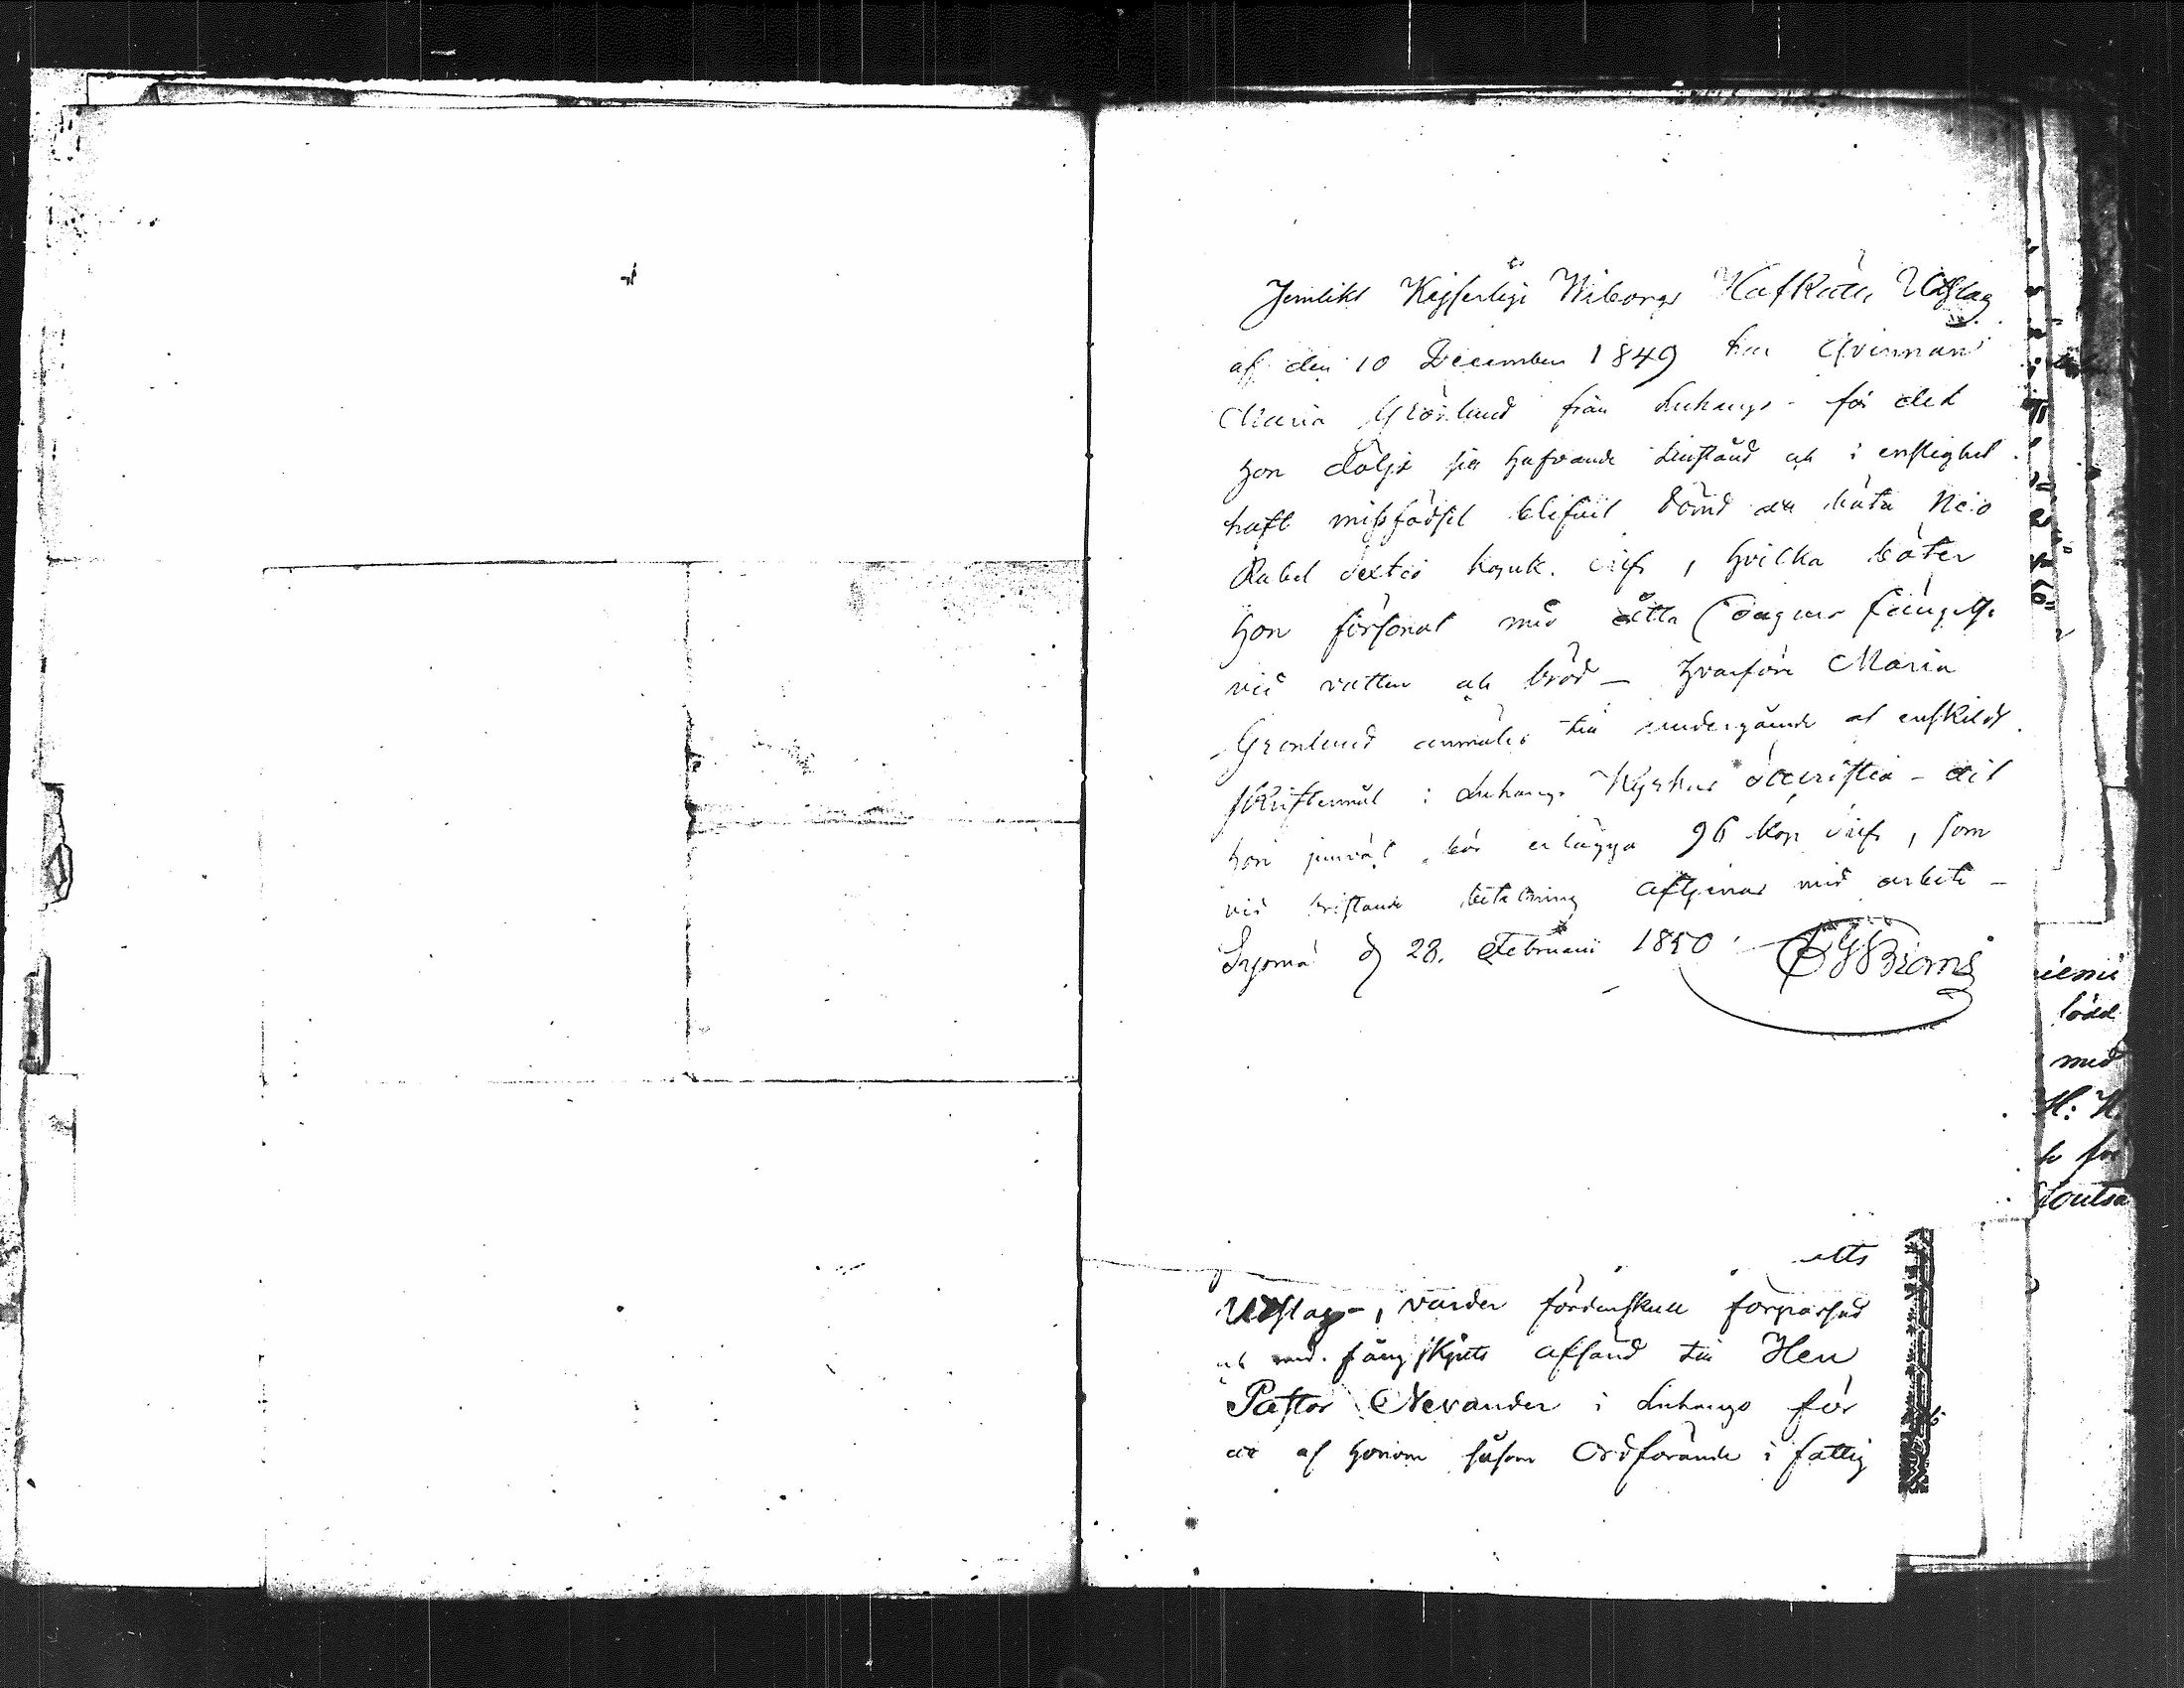 Jemlikt Kejserliga Wiborgs HofRätts Utslag
af den 10 December 1849 har Qvinnan
Maria Grönlund från Luhango för det
hon döljt sitt hafvande tillstånd och i enslighet
haft missfödsel blifvit dömd att böta Nio
Rubel sextio kopek. silfr, hvilka böter
hon försonat med åtta dagars fängelse
vid vatten och bröd – hvarföre Maria
Grönlund anmäles till undergående af enskildt
skriftermål i Luhango Kyrkas Sacristia – dit
hon jemväl bör erlägga 96 kop silfr, som
vid bristande betalning aftjenas med arbete –
Sysmä d 28. Februarii 1850.
etts
Utslag –, varder fördenskull förpassad
och med fångskjuts afsänd till Herr
Pastor Nevander i Luhango för
att af honom såsom Ordförande i fattig
med